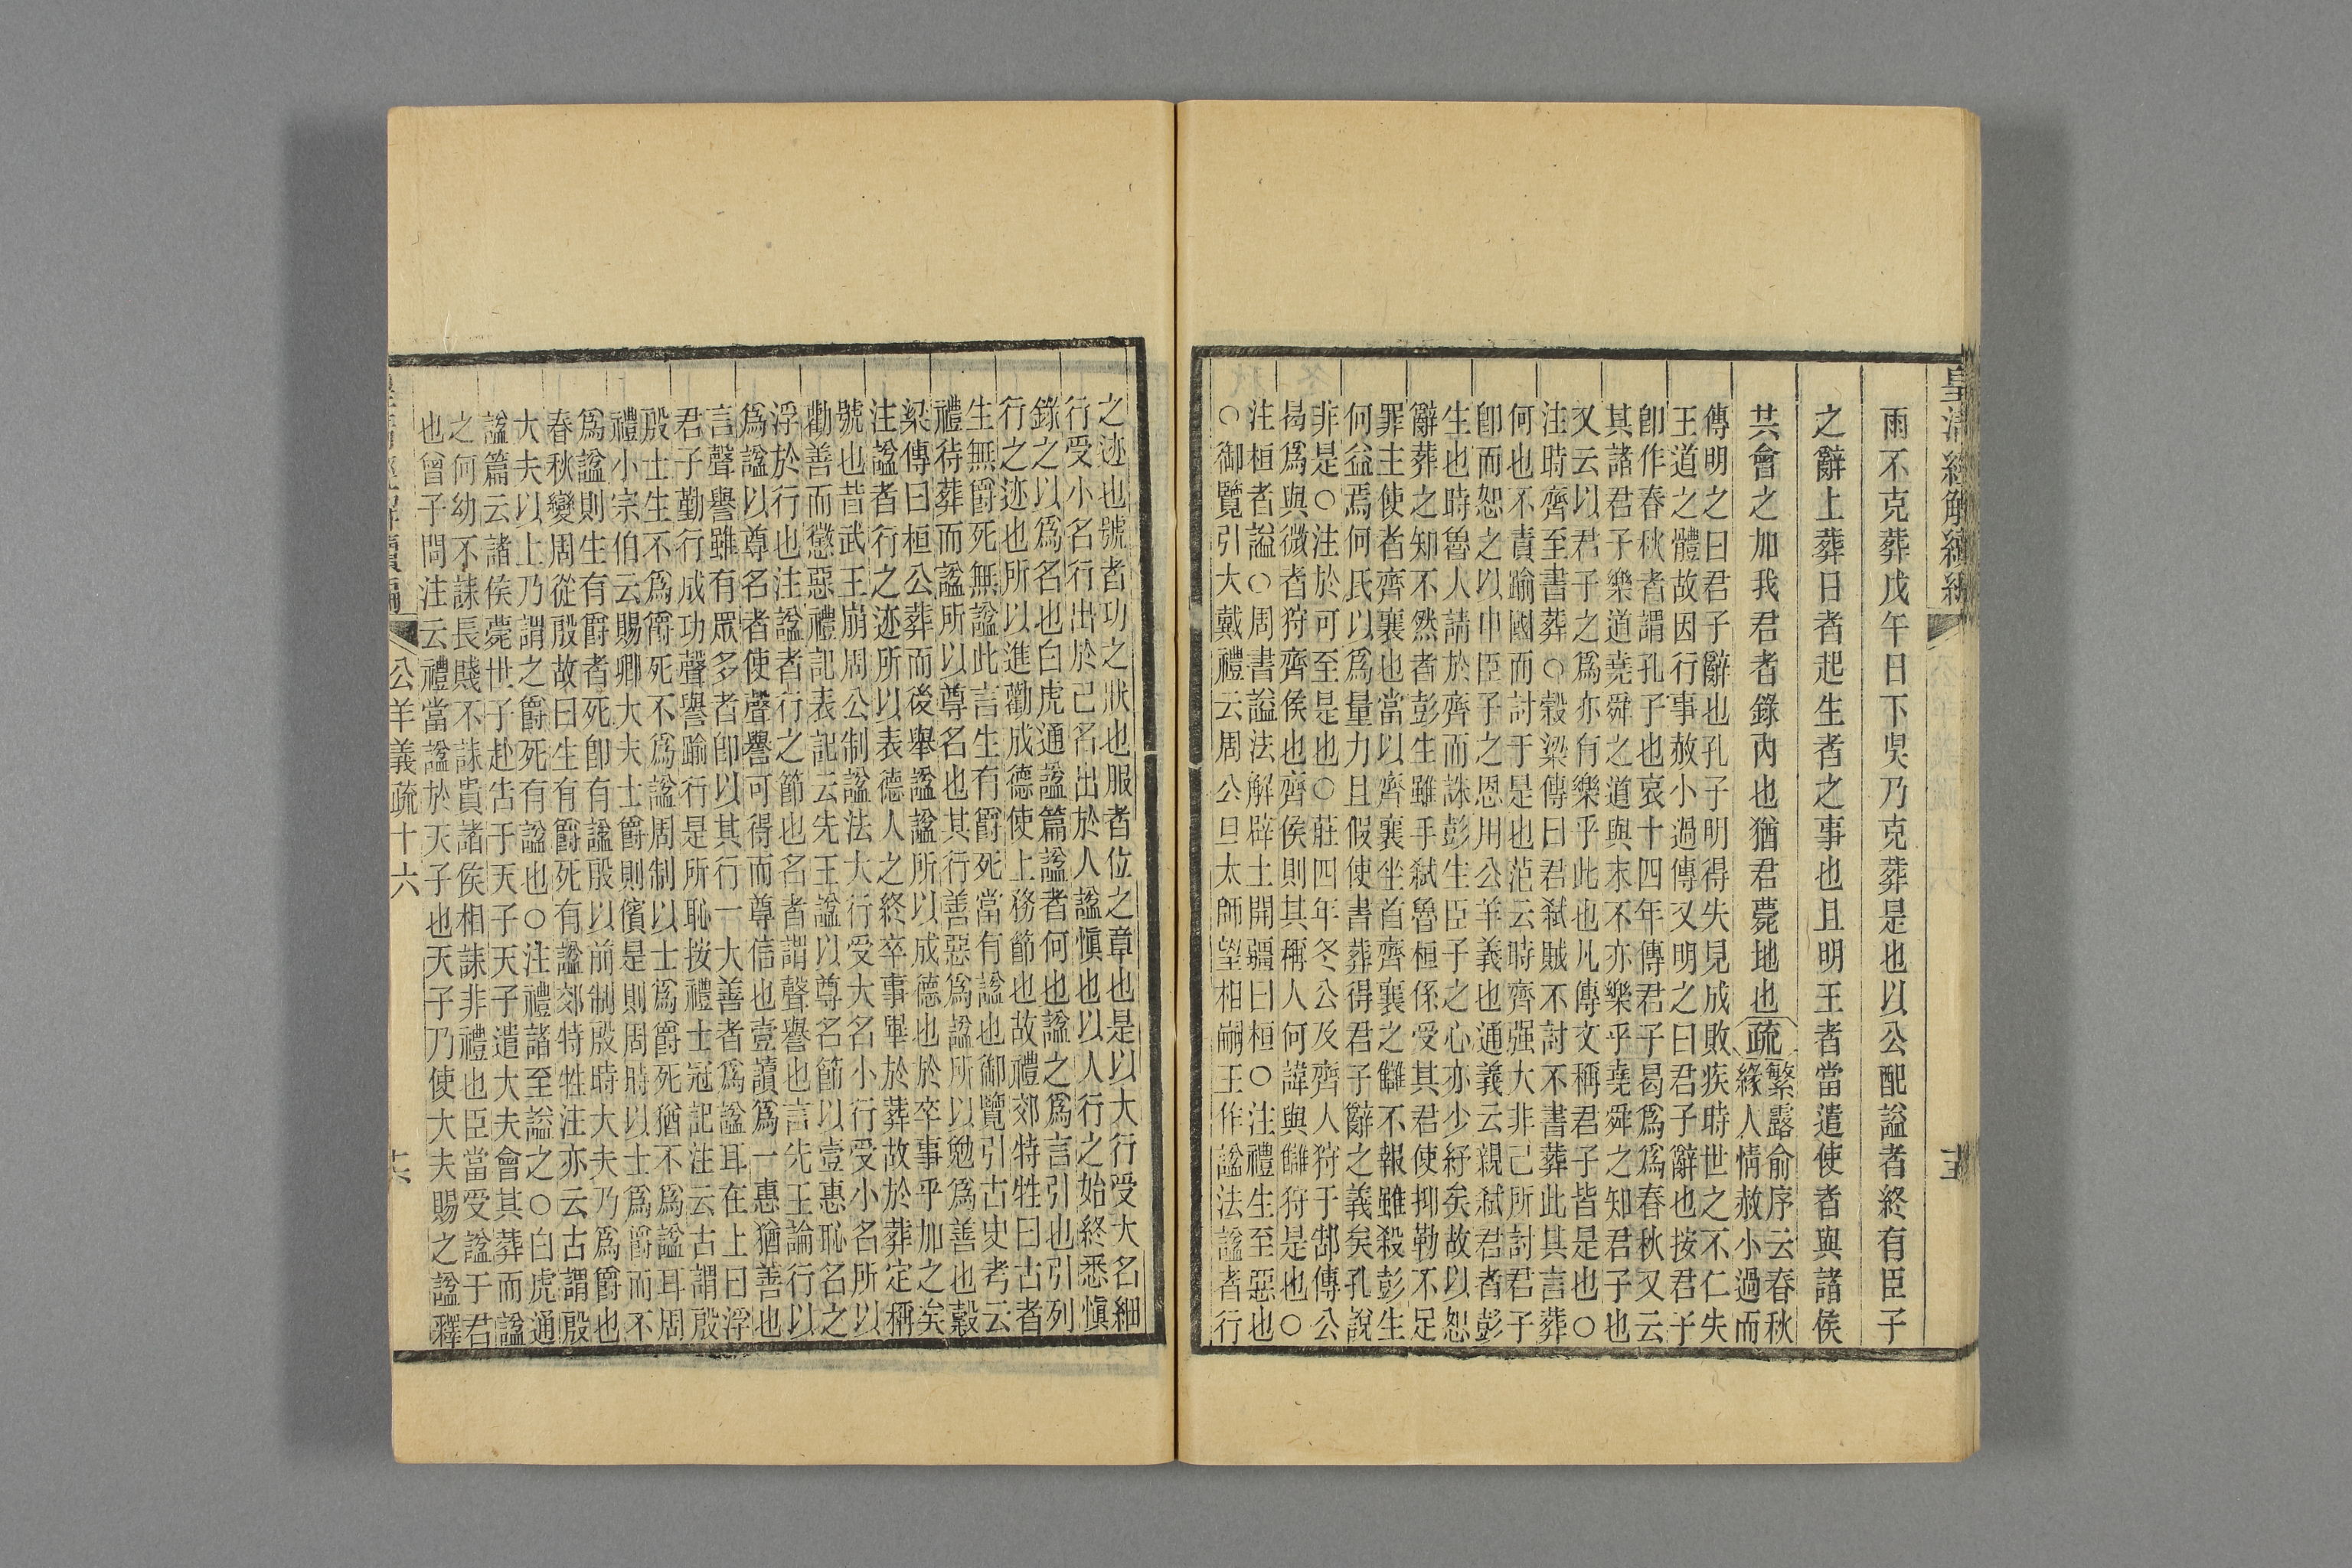 皇清經解續編
雨不克葬戊午日下昃乃克葬是也以公配謚者終有臣子
之辭上葬日者起生者之事也且明王者當遣使者與諸侯
共會之加我君者錄內也猶君薨地也疏繁露俞序云春秋
緣人情赦小過而
傳明之曰君子辭也孔子明得失見成敗疾時世之不仁失
王道之體故因行事赦小過傳又明之曰君子辭也按君子
卽作春秋者謂孔子也哀十四年傳君子曷爲爲春秋又云
其諸君子樂道堯舜之道與末不亦樂乎堯舜之知君子也
又云以君子之爲亦有樂乎此也凡傳文稱君子皆是也○
注時齊至書葬○穀梁傳曰君弒賊不討不書葬此其言葬
何也不責踰國而討于是也范云時齊强大非己所討君子
卽而恕之以申臣子之恩用公羊義也通義云親弒君者彭
生也時魯人請於齊而誅彭生臣子之心亦少紓矣故以恕
辭葬之知不然者彭生雖手弒魯桓係受其君使抑勒不足
罪主使者齊襄也當以齊襄坐首齊襄之讎不報雖殺彭生
何益焉何氏以爲量力且假使書葬得君子辭之義矣孔說
非是○注於可至是也○莊四年冬公及齊人狩于郜傳公
曷爲與微者狩齊侯也齊侯則其稱人何諱與讎狩是也○
注桓者謚○周書謚法解辟土開疆曰桓○注禮生至惡也
○御覽引大戴禮云周公旦太師望相嗣王作謚法謚者行
之迹也號者功之狀也服者位之章也是以大行受大名細
行受小名行出於己名出於人謚愼也以人行之始終悉愼
錄之以爲名也白虎通謚篇謚者何也謚之爲言引也引列
行之迹也所以進勸成德使上務節也故禮郊特牲曰古者
生無爵死無謚此言生有爵死當有謚也御覽引古史考云
禮待葬而謚所以尊名也其行善惡爲謚所以勉爲善也穀
梁傳曰桓公葬而後舉謚謚所以成德也於卒事乎加之矣
注謚者行之迹所以表德人之終卒事畢於葬故於葬定稱
號也昔武王崩周公制謚法大行受大名小行受小名所以
勸善而懲惡禮記表記云先王謚以尊名節以壹惠恥名之
浮於行也注謚者行之節也名者謂聲譽也言先王論行以
爲謚以尊名者使聲譽可得而尊信也壹讀爲一惠猶善也
言聲譽雖有眾多者卽以其行一大善者爲謚耳在上曰浮
君子勤行成功聲譽踰行是所恥按禮士冠記注云古謂殷
殷士生不爲爵死不爲謚周制以士爲爵死猶不爲謚耳周
禮小宗伯云賜卿大夫士爵則儐是則周時以士爲爵而不
爲謚則生有爵者死卽有謚殷以前制殷時大夫乃爲爵也
春秋變周從殷故曰生有爵死有謚郊特牲注亦云古謂殷
大夫以上乃謂之爵死有謚也○注禮諸至謚之○白虎通
謚篇云諸侯薨世子赴告于天子天子遣大夫會其葬而謚
之何幼不誄長賤不誄貴諸侯相誄非禮也臣當受謚于君
也曾子問注云禮當謚於天子也天子乃使大夫賜之謚釋
公羊義疏十六